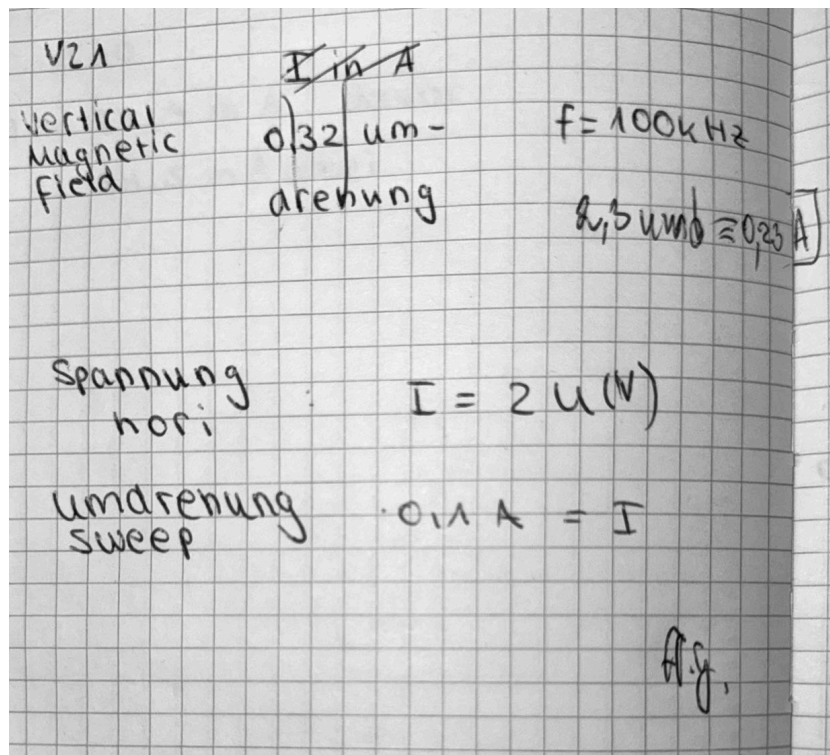 V21
I in A
vertical
Magnetic
field
0,32 um-
drehung
f = 100kHz
2,3 umd ≅ 0,23 A
Spannung
hori : I = 2 U (V)
umdrehung
sweep · 0,1 A = I